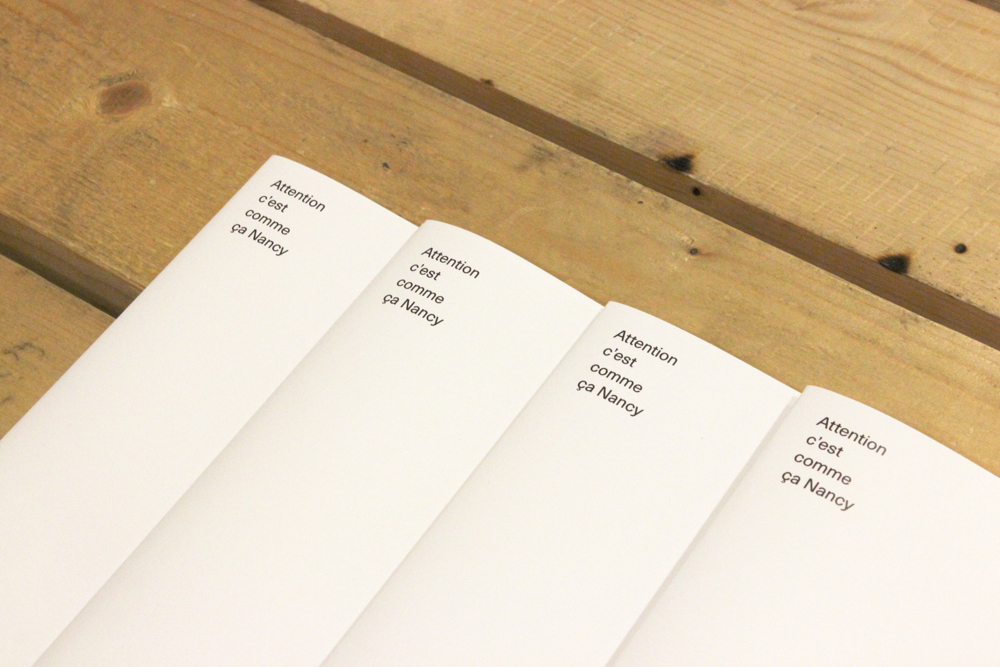 Attention
c'est
comme
ça Nancy
Attention
c'est
comme
ça Nancy
Attention
c'est
comme
ça Nancy
Attention
c'est
comme
ça Nancy